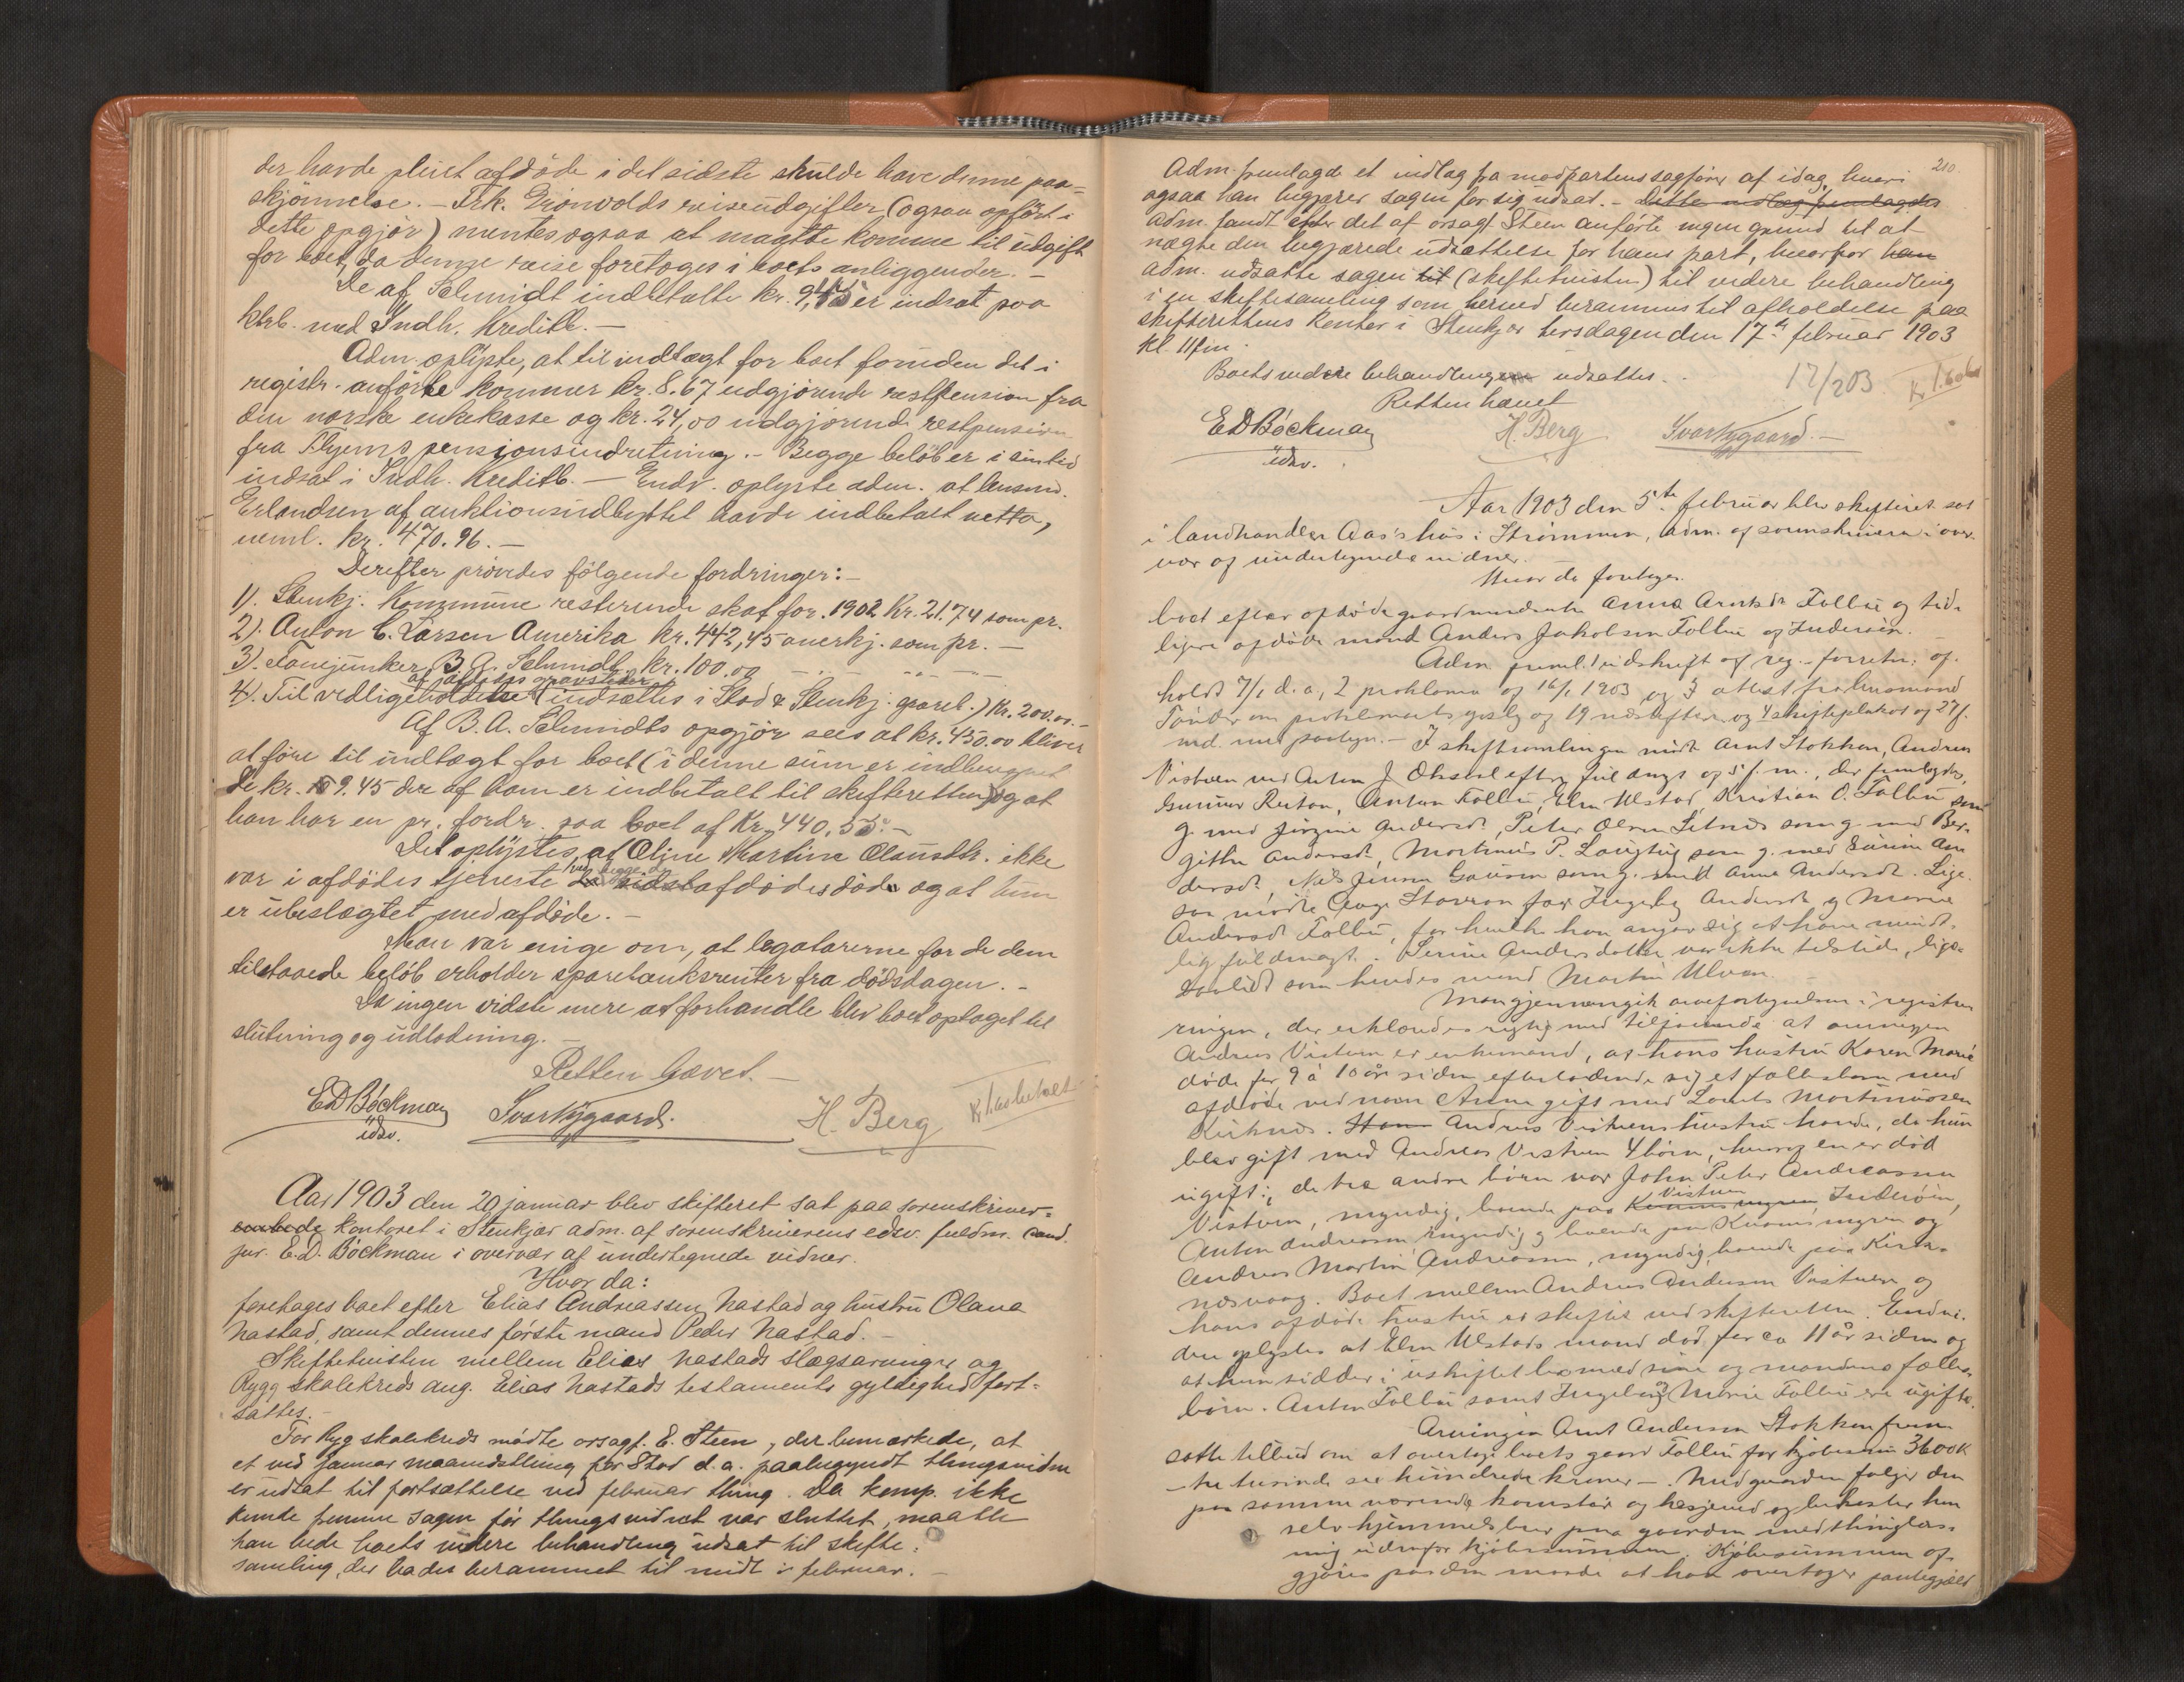 der havde pleiet afdøde i det sidste skulde have denne paa=
skjønnelse. - Frk. Grønvolds reiseudgifter (ogsaa opført i
dette opgjør) mentes ogsaa at maatte komme til udgift
for boet, da denne reise foretoges i boets anliggender. -
De af Schmidt indbetalte kr. 9,45 er indsat paa
ktrb. med Indh. Kreditb. -
Adm. oplyste, at til indtægt for boet foruden det i
registr. anførte kommer kr. 8.67 udgjørende restpension fra
den norske enkekasse og kr. 24,00 udgjørende restpension
fra pensionsindretning. - Begge beløb er i sin tid
indsat i Indh. Kreditb. - Endv. oplyste adm. at lensm.
Erlandsen af auktionsudbyttet havde indbetalt netto,
neml. kr. 470.96. -
Derefter prøvedes følgende fordringer: -
1). Stenkj. Kommune resterende skat for 1902 Kr. 21.74 som pr.
2). Anton C. Larsen Amerika kr. 442,45 anerkj. som pr. -
3). Fanejunker B. A. Schmidt kr. 100.00 -"- -"- -"-
af afdødes gravsteder
4). Til vedligeholdelse (indsættes i Stod & Stenkj. spareb.) Kr. 200.00. -
Af B. A. Schmidts opgjør sees at kr. 450.00 bliver
at føre til indtægt for boet (i denne sum er indberegnet
de kr. 9.45 der af ham er indbetalt til skifteretten) og at
han har en pr. fordr. paa boet af Kr. 440,55. -
Det oplystes, at Oline Martine Olausdtr. ikke
var i afdødes tjeneste ved begge sidst afdødes død og at hun
er ubeslægtet med afdøde. -
Man var enige om, at legatarerne for de dem
tilstaaede beløb erholder sparebanksrenter fra dødsdagen. -
Da ingen vidste mere at forhandle blev boet optaget til
slutning og udlodning. -
Retten hævet. -
E D Bøckman
edsv.
Ivar Nygaard.
H. Berg
Aar 1903 den 20 januar blev skifteret sat paa sorenskriver=
kontoret i Stenkjær adm. af sorenskriverens edsv. fuldm. cand.
jur. E. D. Bøckman i overvær af undertegnede vidner.
Hvor da:
foretages boet efter Elias Andreassen Nastad og hustru Olava
Nastad, samt dennes første mand Peder Nastad. -
Skiftetvisten mellem Elias Nastads slægsarvinger og
Rygg skolekreds ang. Elias Nastads testaments gyldighed fort=
sattes. -
For Ryg skolekreds mødte orsagf. E. Steen, der bemærkede, at
et ved Januar maanedsthing for Stod d. a. paabegyndt thingsvidne
er udsat til fortsættelse ved februar thing. Da komp. ikke
kunde fremme sagen før thingsvidnet var sluttet, maatte
han bede boets videre behandling udsat til skifte=
samling, der bades berammet til midt i februar. -
210
Adm. fremlagde et indlæg fra modpartens sagfører af idag, hvori
ogsaa han begjærer sagen for sig udsat. - Dette indlæg fremlagdes
Adm. fandt efter det af orsagf Steen anførte ingen grund til at
nægte den begjærede udsættelse for hans part, hvorfor han
adm. udsatte sagen til (skiftetvisten) til videre behandling
i en skiftesamling som herved berammes til afholdelse paa
skifterettens kontor i Stenkjær tirsdagen den 17de februar 1903
kl. 11 fm.
Boets videre behandling udsættes.
17/2 03
Retten hævet
E D Bøckman
edsv.
H. Berg
Ivar Nygaard. -
Aar 1903 den 5te februar blev skifteret sat
i landhandler Aas's hus i Strømmen, adm. af sorenskriveren i over=
vær af undertegnede vidner.
Hvor da foretoges
boet efter afdøde gaardmandsenke Anna Arntsdtr Follbu og tid=
ligere afdøde mand Anders Jakobsen Follbu af Inderøen.
Adm. freml. udskrift af reg.-forretn. af=
holdt 7/1 d. a., 2 proklama af 16/1 1903 og attest fra lensmand
Tønder om proklamats opslag og 19 udskrifter og 4 skifteplakat af 27/1.
I skiftesamlingen mødte Arnt Stokken, Andreas
Vistven ved Anton J. efter fuldmagt af 5 f. m., der fremlagdes,
Gunnar Reitan, Anton Follbu, Elen Ulstad, Kristian O. Follbu som
g. med Jørgine Andersdt, Peter Olsen Letnes som g. med Ber=
gitte Andersdt, Martinus P. Langtug som g. med An
dersdt, Nils Jensen som g. med Anne Andersdt. Lige=
saa mødte Aage Stavran for Ingeborg Andersdt og Marie
Andersdt Follbu, for hvilke han angav sig at have mundt=
lig fuldmagt. Serine Andersdatter var ikke tilstede, lige=
saalidt som hendes mand Martin Ulven.
Man gjennemgik arvefortegnelsen i registre
ringen, der erklæredes rigtig med tilføiende at arvingen
Andreas Vistven er enkemand, at hans hustru Karen Marie
døde for 9 à 10 år siden efterladende sig et fællesbarn med
afdøde ved navn Anne gift med Laurits Martinussen
Andreas Vistvens hustru havde, da hun
blev gift med Andreas Vistven 4 børn, hvoraf en er død
ugift; de tre andre børn var John Peter Andreassen
Vistven, myndig, boende paa Vistven, Inderøen,
Anton Andreassen myndig og boende paa Kvamsmyren og
Andreas Martin Andreassen, myndig, boende paa Kirk=
nesvaag. Boet mellem Andreas Andersen Vistven og
hans afdøde hustru er skiftet ved skifteretten. Endvi=
dere oplystes at Elen Ulstads mand døde for ca 11 år siden og
at hun sidder i uskiftet bo med sine og mandens fælles=
børn. Anton Follbu samt Ingeborg og Marie Follbu ere ugifte.
Arvingen Arnt Andersen Stokken frem
satte tilbud om at overtage boets gaard Follbu for kjøbesum 3600 K
tre tusinde sex hundrede kroner -. Med gaarden følger den
paa samme værende kornstør og hesjeved og bekoster han
selv hjemmelsbrev paa gaarden med thinglæs=
ning udenfor kjøbesummen. Kjøbesummen af=
gjøres paa den maade at han overtager pantegjæld